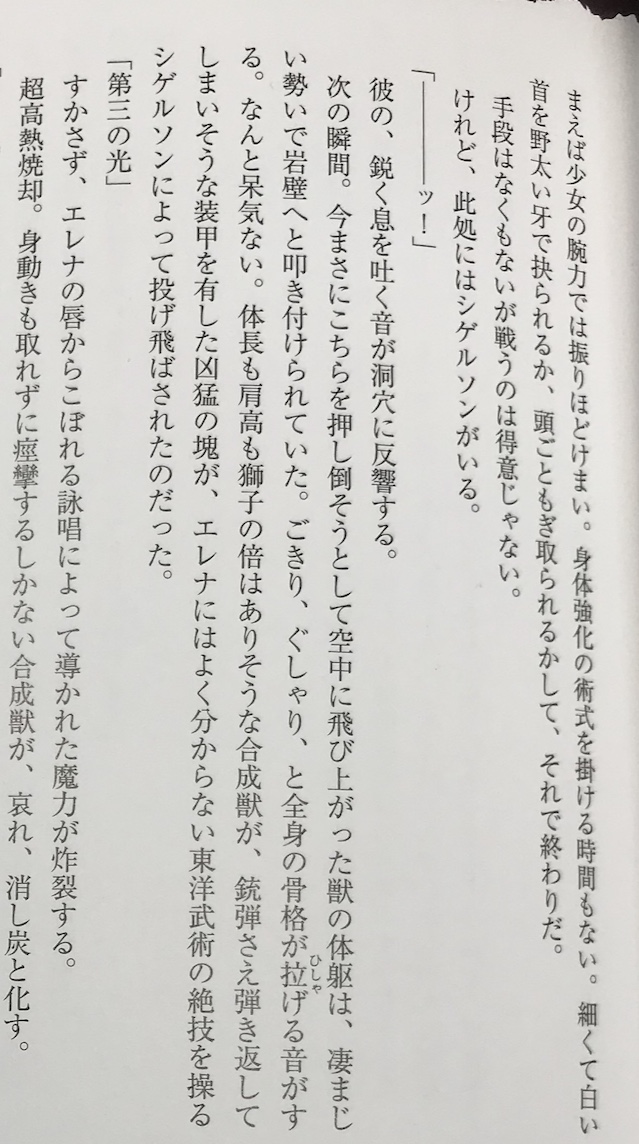 まえば少女の腕力では振りほどけまい。身体強化の術式を掛ける時間もない。細くて白い
首を野太い牙で抉られるか、頭ごともぎ取られるかして、それで終わりだ。
手段はなくもないが戦うのは得意じゃない。
けれど、此処にはシゲルソンがいる。
「───ッ！」
彼の、鋭く息を吐く音が洞穴に反響する。
次の瞬間。今まさにこちらを押し倒そうとして空中に飛び上がった獣の体躯は、凄まじ
い勢いで岩壁へと叩き付けられていた。ごきり、ぐしゃり、と全身の骨格が拉げる音がす
る。なんと呆気ない。体長も肩高も獅子の倍はありそうな合成獣が、銃弾さえ弾き返して
しまいそうな装甲を有した凶猛の塊が、エレナにはよく分からない東洋武術の絶技を操る
シゲルソンによって投げ飛ばされたのだった。
「第三の光」
すかさず、エレナの唇からこぼれる詠唱によって導かれた魔力が炸裂する。
超高熱焼却。身動きも取れずに痙攣するしかない合成獣が、哀れ、消し炭と化す。